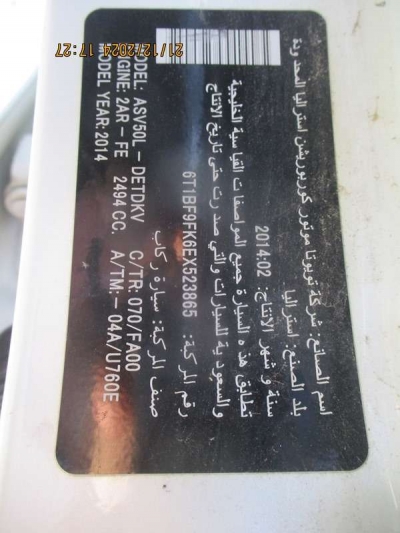 اسم الصانع: شركة تويوتا موتور كوربوريشن استراليا المحدودة
بلد الصنع: استراليا
سنة و شهر الانتاج: 2014:02
تطابق هذه السيارة جميع المواصفات القياسية الخليجية
والسعودية للسيارات والتي صدرت حتى تاريخ الانتاج
رقم المركبة: 6T1BF9FK6EX523865
صنف المركبة: سيارة ركاب
MODEL: ASV50L - DETDKV C/TR: 070/FA00
ENGINE: 2AR - FE 2494 CC. A/TM: - 04A/U760E
MODEL YEAR: 2014
21/12/2024 17:27